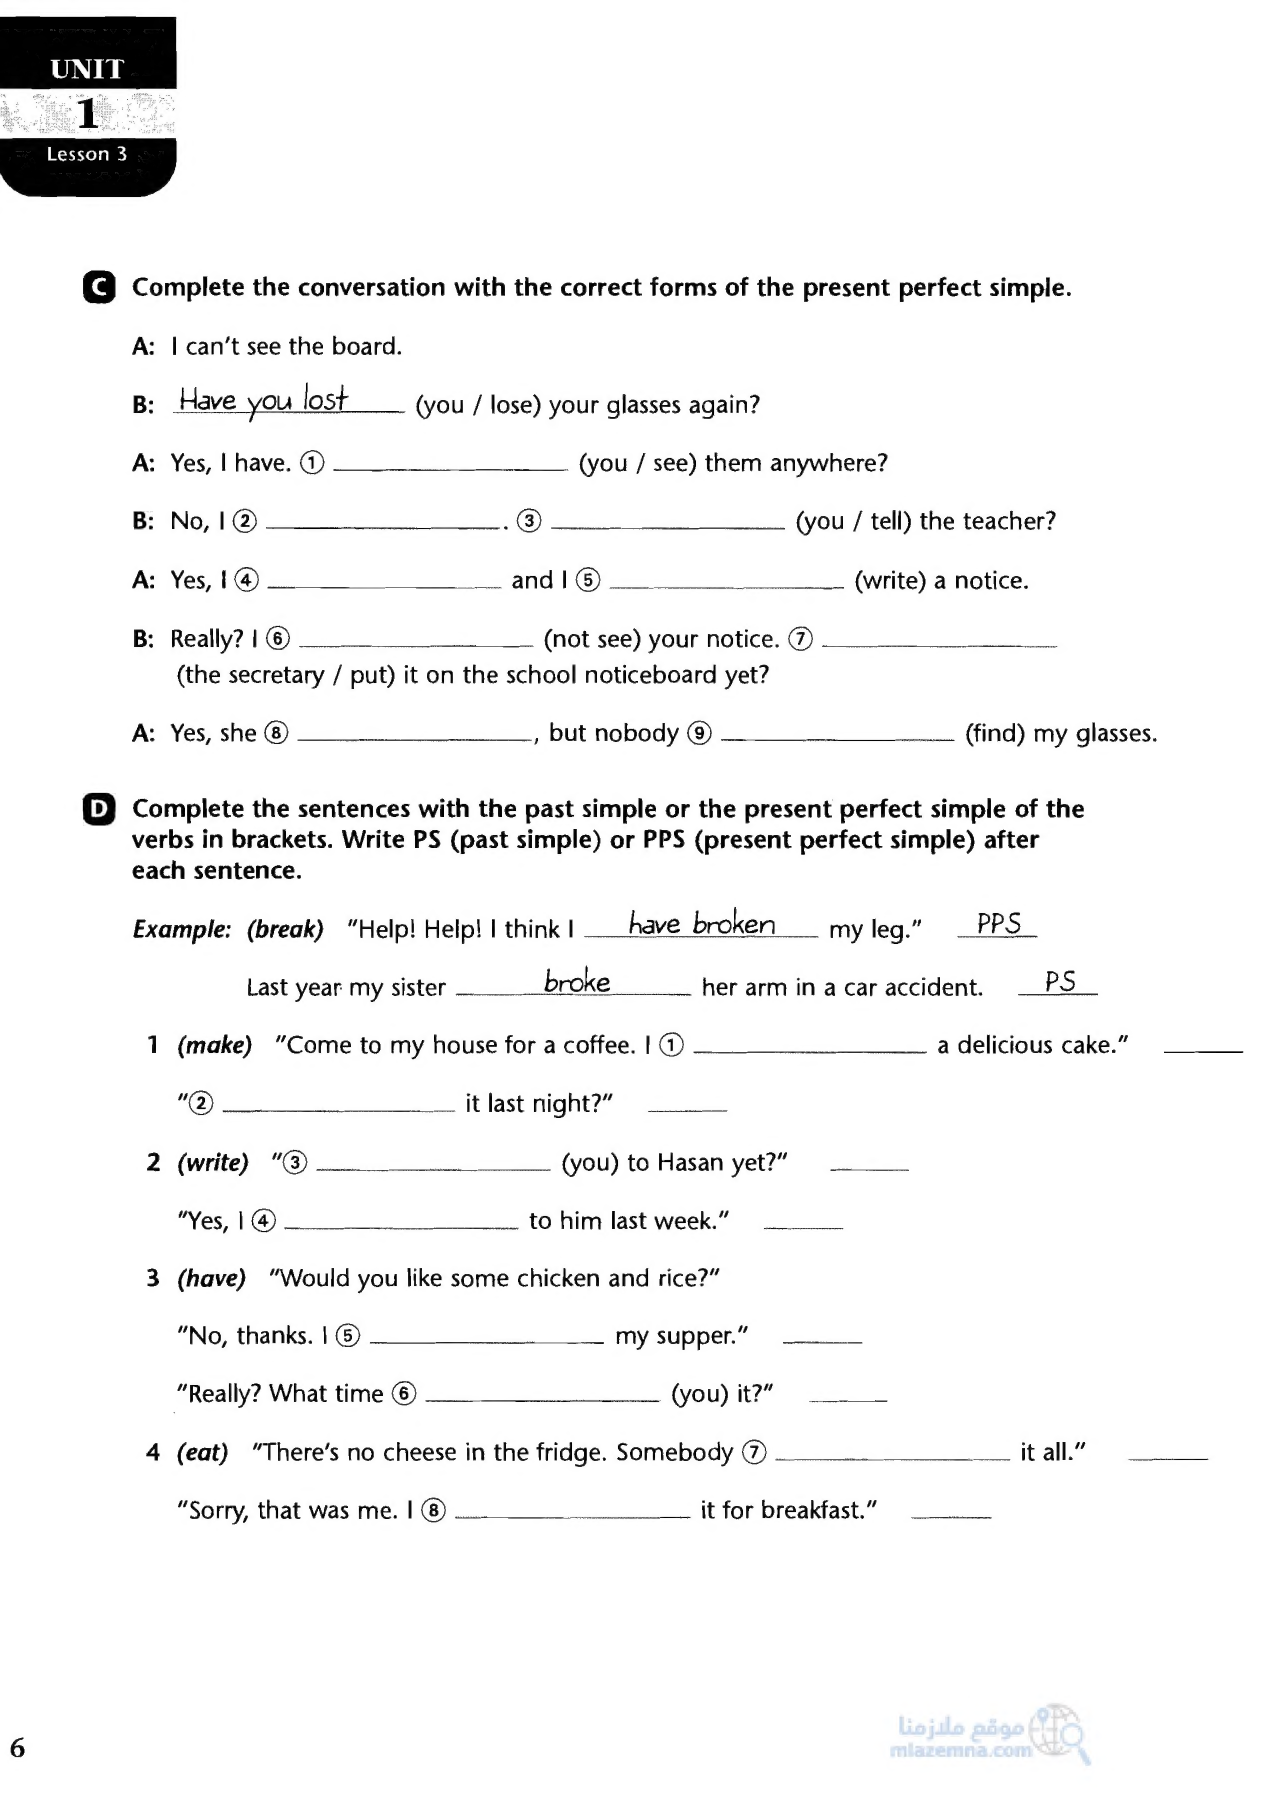 UNIT
1
Lesson 3
C Complete the conversation with the correct forms of the present perfect simple.
A: I can't see the board.
B: Have you lost (you / lose) your glasses again?
A: Yes, I have. ① ____________ (you / see) them anywhere?
B: No, I ② ____________. ③ ____________ (you / tell) the teacher?
A: Yes, I ④ ____________ and I ⑤ ____________ (write) a notice.
B: Really? I ⑥ ____________ (not see) your notice. ⑦ ____________
(the secretary / put) it on the school noticeboard yet?
A: Yes, she ⑧ ____________, but nobody ⑨ ____________ (find) my glasses.
D Complete the sentences with the past simple or the present perfect simple of the
verbs in brackets. Write PS (past simple) or PPS (present perfect simple) after
each sentence.
Example: (break) "Help! Help! I think I have broken my leg." PPS
Last year my sister broke her arm in a car accident. PS
1 (make) "Come to my house for a coffee. I ① ____________ a delicious cake." ____
"② ____________ it last night?" ____
2 (write) "③ ____________ (you) to Hasan yet?" ____
"Yes, I ④ ____________ to him last week." ____
3 (have) "Would you like some chicken and rice?"
"No, thanks. I ⑤ ____________ my supper." ____
"Really? What time ⑥ ____________ (you) it?" ____
4 (eat) "There's no cheese in the fridge. Somebody ⑦ ____________ it all." ____
"Sorry, that was me. I ⑧ ____________ it for breakfast." ____
موقع ملازمنا
mlazemna.com
6